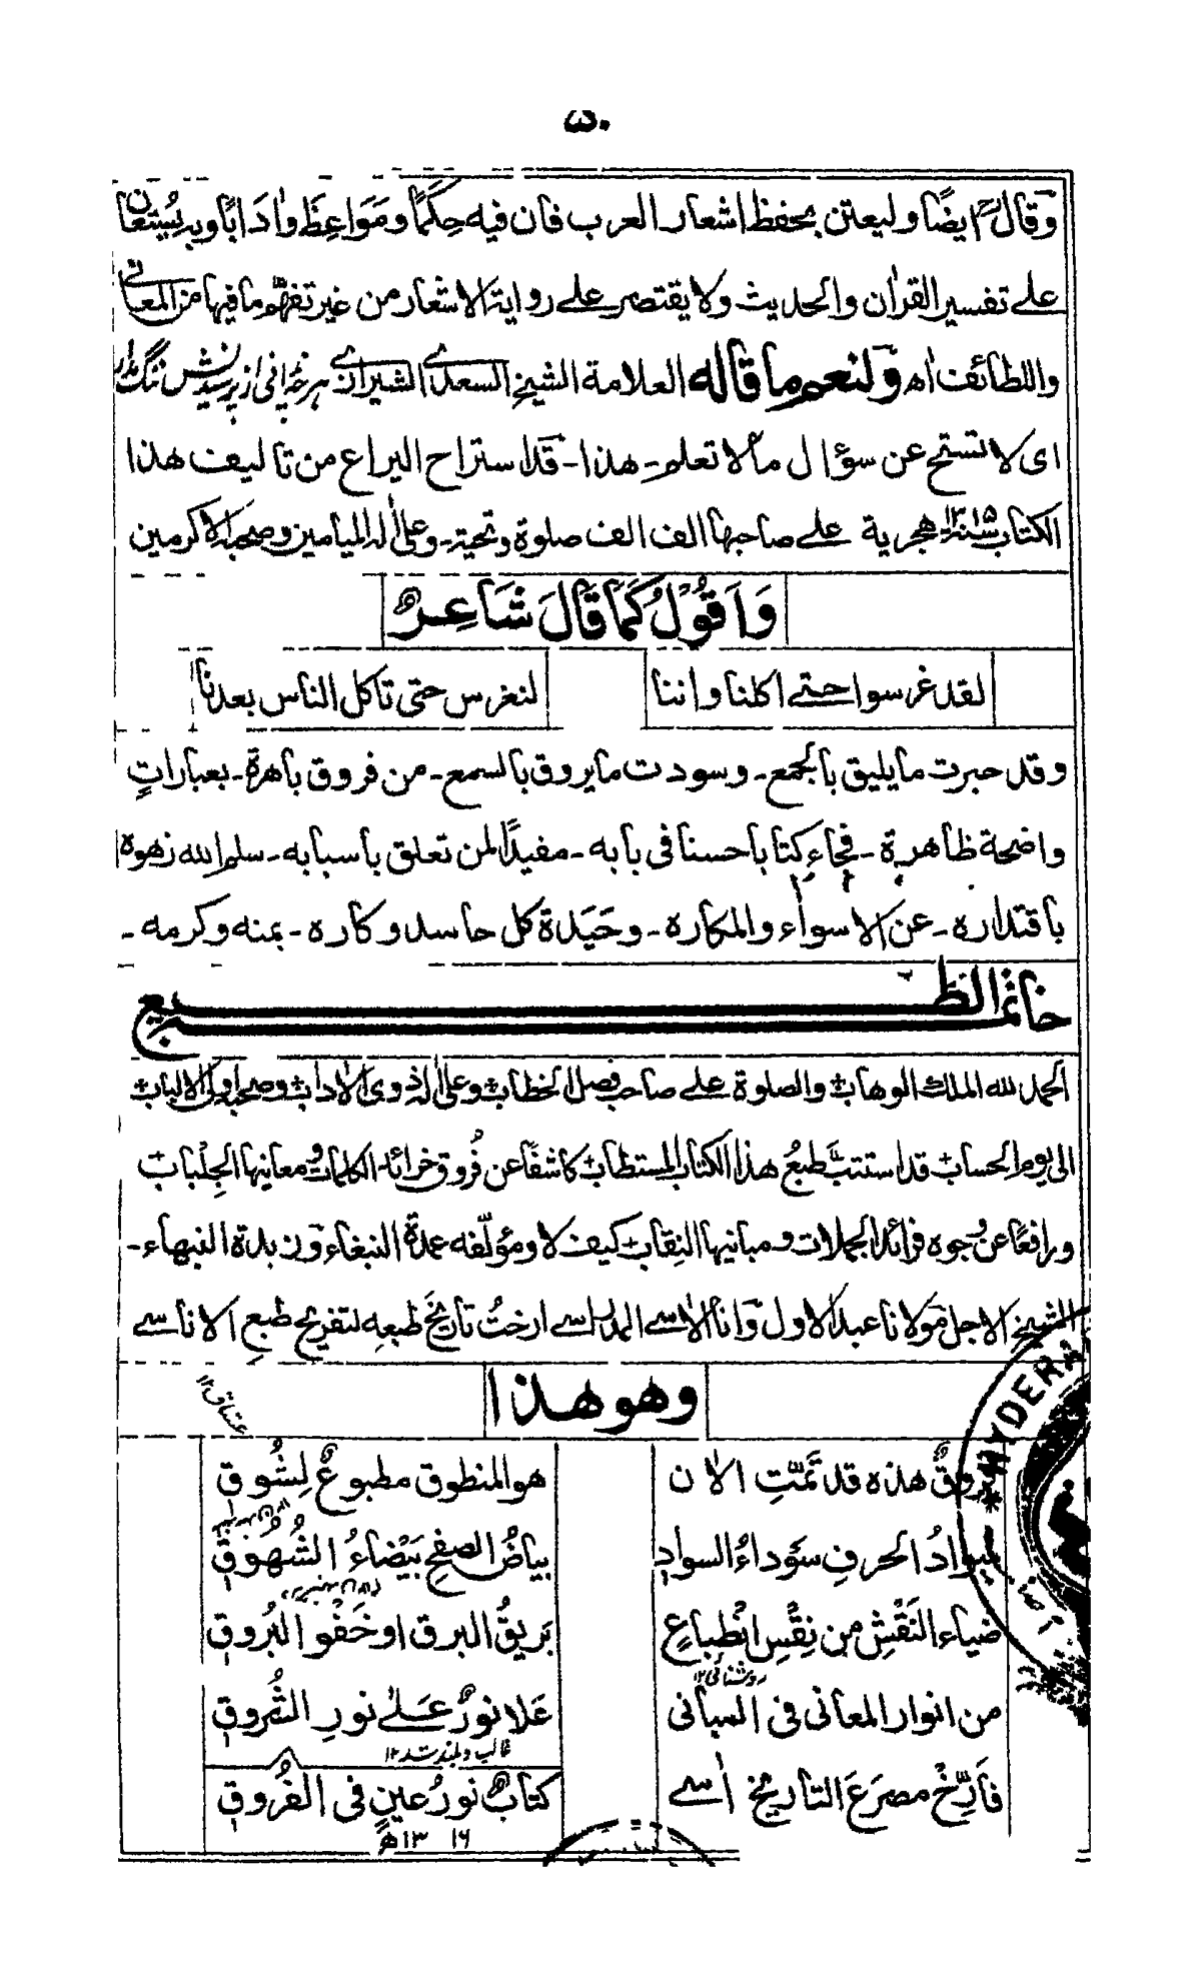 ۵۰
وقالؒ ايضًا وليعتن بحفظ اشعار العرب فان فيه حِكَمًا ومَوَاعِظَ واٰدَابًا وبه يُستعان
علے تفسير القراٰن والحديث ولا يقتصر علے رواية الاشعار من غير تفهّم ما فيها من المعانى
واللطائف اھ ولنعم ما قاله العلامة الشيخ السعدى الشيرازى ہر چہ دانی از پرسیدنش ننگ مدار
اى لا تستحِ عن سؤال ما لا تعلم۔ هذا۔ قد استراح اليراع من تاليف هذا
الكتاب ۱۳۱۵ هجرية علے صاحبها الف الف صلوة وتحية۔ وعلى اٰله الميامين وصحبه الاكرمين
وَاَقُوْلُ كَمَا قَالَ شَاعِرٌ
لقد غرسوا حتے اكلنا واننا
لنغرس حتى تاكل الناس بعدنا
وقد حبرت ما يليق بالجمع۔ وسودت ما يروق بالسمع۔ من فروق باهرة۔ بعباراتٍ
واضحة ظاهرة۔ فجاء كتابا حسنا فى بابه۔ مفيدًا لمن تعلق باسبابه۔ سلم الله زهوه
باقتداره۔ عن الاسواء والمكاره۔ وحَيَدَة كل حاسد وكاره۔ بمنه وكرمه۔
خاتمة الطبع
الحمد لله الملك الوهاب والصلوة علے صاحب فصل الخطاب وعلى اٰله ذوى الاٰداب وصحبه اولى الالباب
الى يوم الحساب قد استتبَّ طبعُ هذا الكتاب المستطاب كاشفًا عن فُروق خرائد الكلمات ومعانيها الجِلْباب
ورافعًا عن وُجوه فرائد الجملات ومبانيها النِقاب كيف لا ومؤلّفه عمدة النبغاء وزبدة النبهاء۔
الشيخ الاجل مولانا عبد الاول وانا الاٰسے المدراسے ارختُ تاريخَ طبعِه لتفريح طبعِ الاناسے
وهو هذا
عشاق ۱۲
فروقٌ هذه قد تمّتِ الاٰن
هو المنطوق مطبوعٌ لِشُوقِ
سوادُ الحرفِ سَوداءُ السوادِ
بياضُ الصفحِ بَيْضاءُ الشُهُوقِ
ضياء النَقْشِ من نِقْسِ انْطباعٍ
بَريقُ البرق او خَفْو البُروقِ
روشنائی ۱۲
من انوار المعانى فى المبانى
عَلا نورٌ عَلےٰ نورِ الشُروقِ
غالب وبلند شد ۱۲
فاَرِّخْ مصرَعَ التاريخ اٰسے
كتابٌ نورُ عينٍ فى الفُروقِ
۱۳۱۶ھ
HYDERA